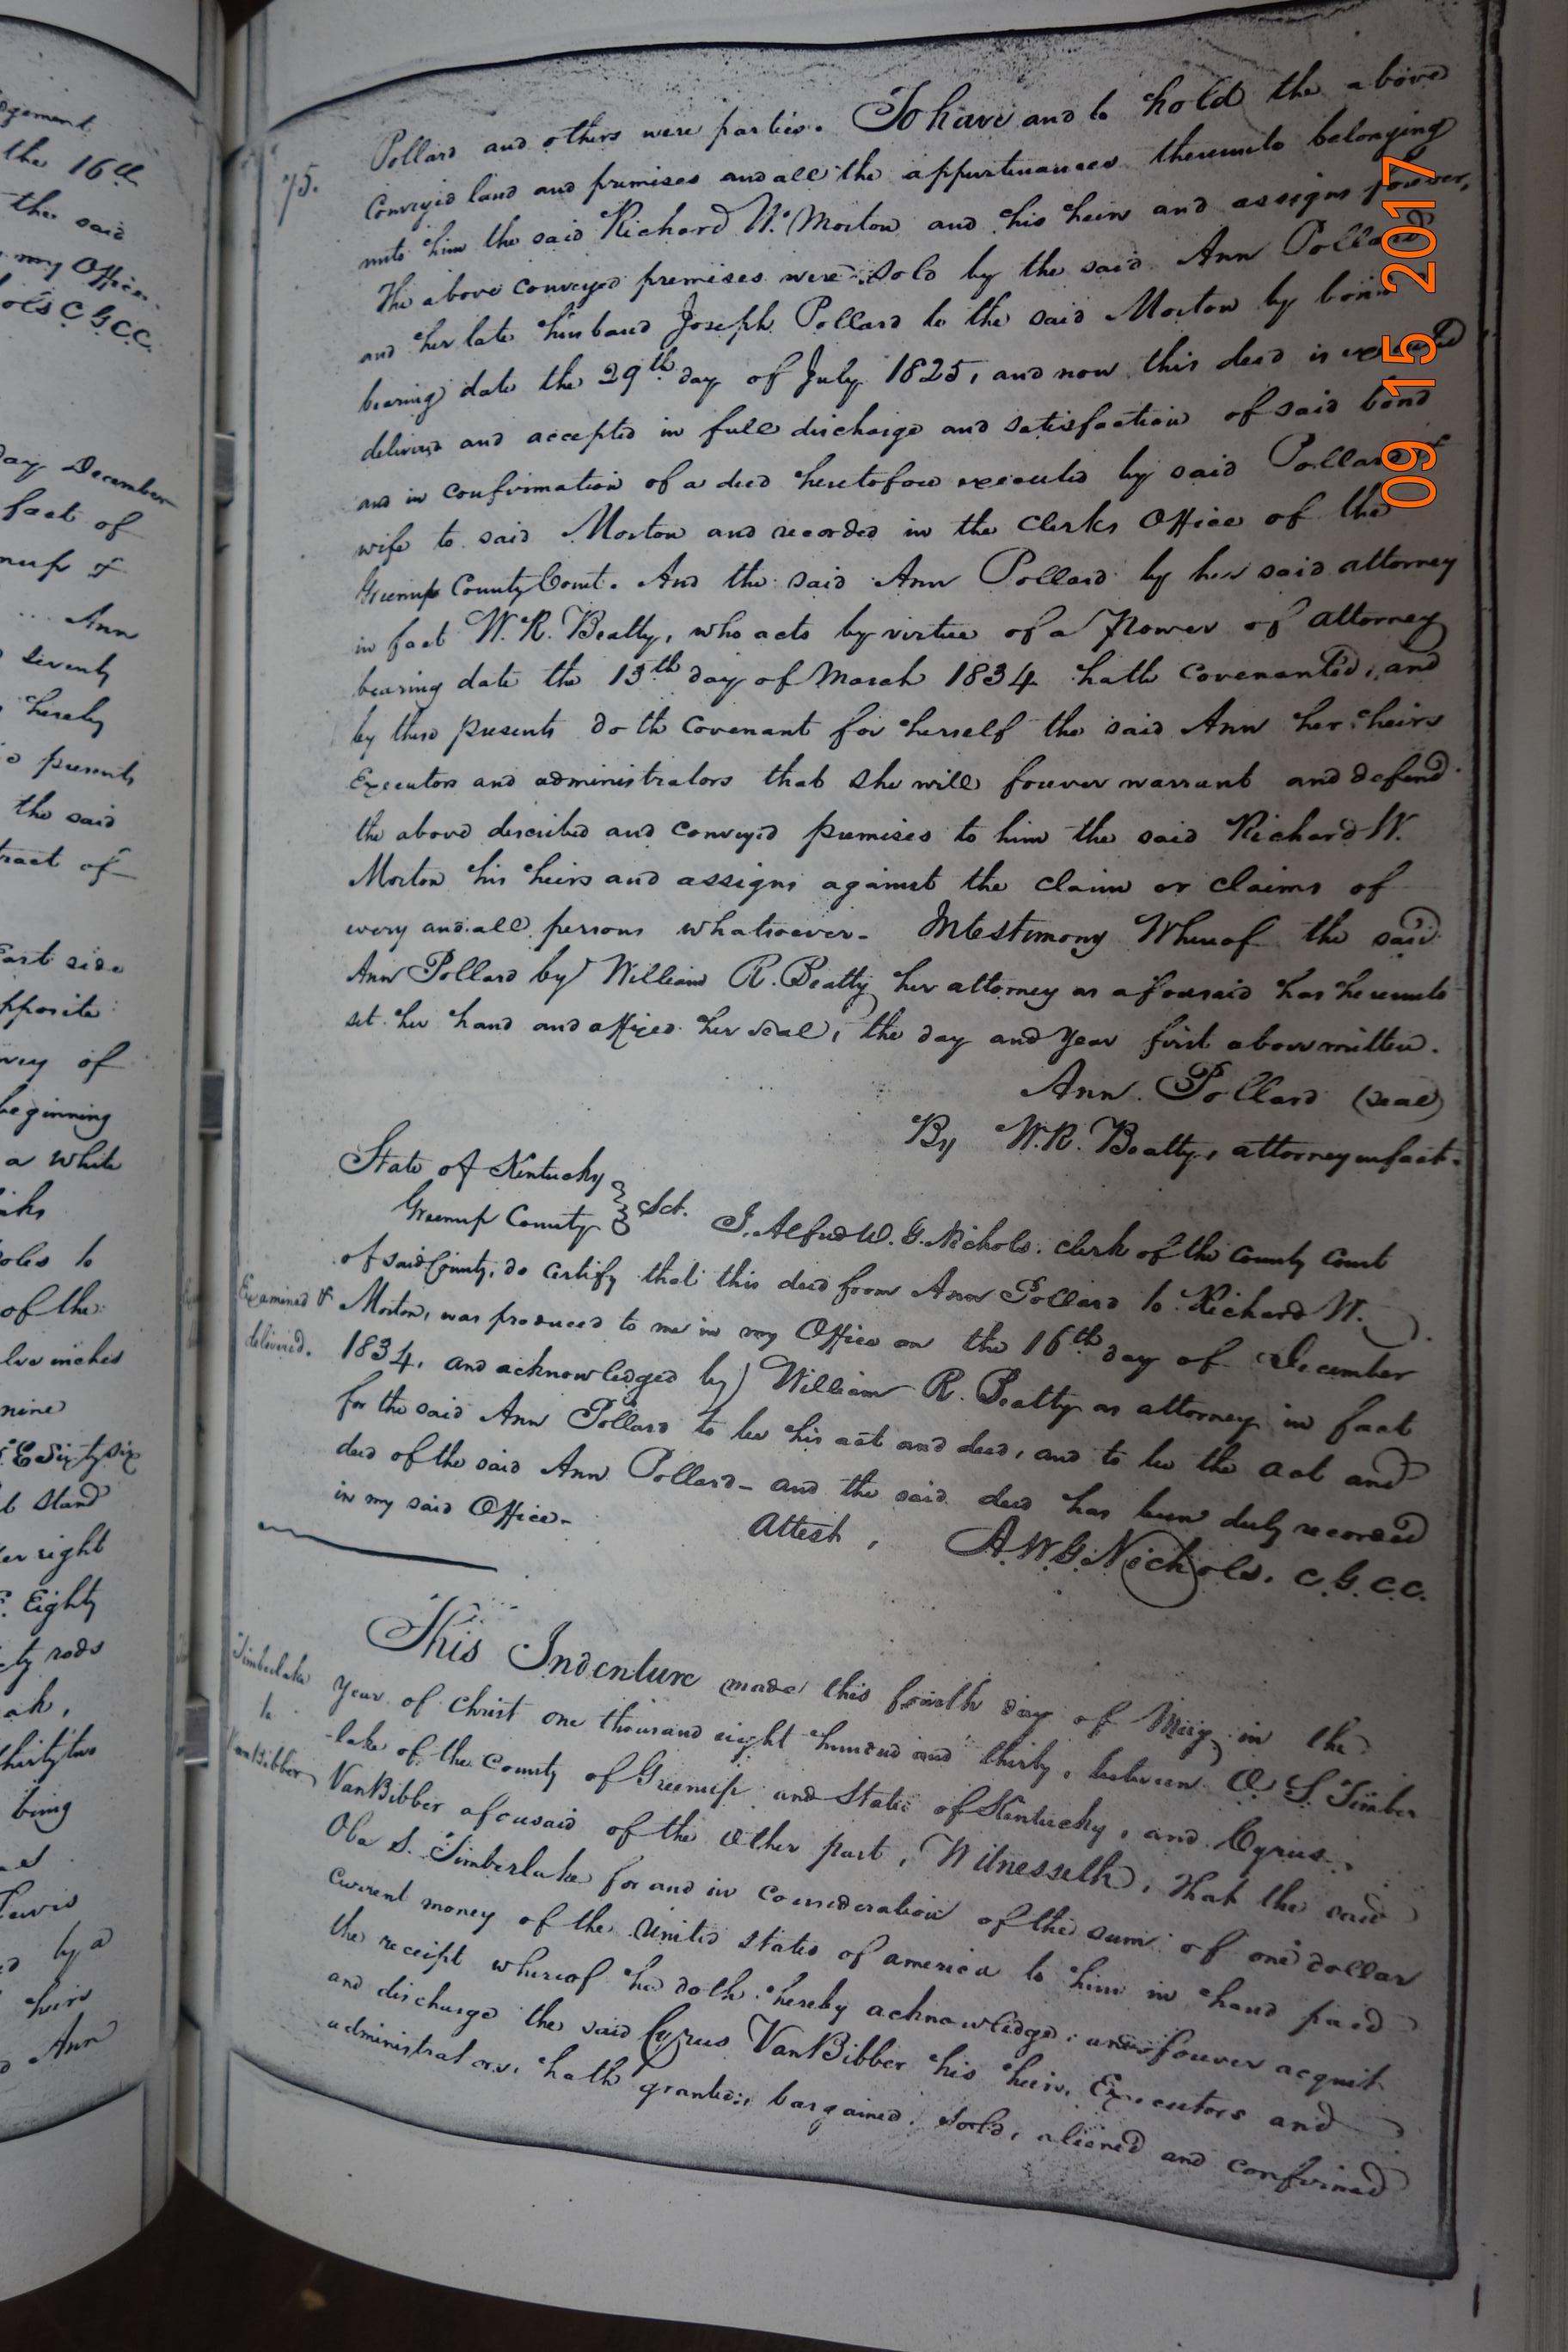 gement
the 16th
the said
my Office.
ols C.G.C.C.
day December
fact of
nup &
Ann
seventy
hereby
presents
the said
tract of
East side
opposite
vey of
beginning
a white
inks
poles to
of the
lve inches
nine
E Sixty six
stand
er right
E. Eighty
ty rods
oak,
thirty two
being
Lewis
by a
heirs
Ann
75.
Pollard and others were parties. To have and to hold the above
Conveyed land and premises and all the appurtenances thereunto belonging
unto him the said Richard W. Morton and his heirs and assigns forever,
The above conveyed premises were sold by the said Ann Pollard
and her late husband Joseph Pollard to the said Morton by bond
bearing date the 29th day of July 1825, and now this deed is executed
delivered and accepted in full discharge and satisfaction of said bond
and in confirmation of a deed heretofore executed by said Pollard &
wife to said Morton and recorded in the Clerks Office of the
Greenup County Court. And the said Ann Pollard by her said attorney
in fact W. R. Beatty, who acts by virtue of a Power of attorney
bearing date the 13th day of March 1834 hath Covenanted, and
by these presents doth Covenant for herself the said Ann her heirs
Executors and administrators that she will forever warrant and defend
the above described and conveyed premises to him the said Richard W.
Morton his heirs and assigns against the claim or claims of
every and all persons whatsoever. In testimony Whereof the said
Ann Pollard by William R. Beatty her attorney as aforesaid has hereunto
set her hand and affixed her seal, the day and year first above written.
Ann Pollard (seal)
By W. R. Beatty, attorney in fact.
State of Kentucky
Greenup County } Sct.
I, Alfred W. G. Nichols, clerk of the County Court
of said County, do certify that this deed from Ann Pollard to Richard W.
Examined & delivered.
Morton, was produced to me in my Office on the 16th day of December
1834, and acknowledged by William R. Beatty as attorney in fact
for the said Ann Pollard to be his act and deed, and to be the act and
deed of the said Ann Pollard - and the said deed has been duly recorded
in my said Office -
Attest, A. W. G. Nichols. C.G.C.C.
Timberlake
to
VanBibber
This Indenture made this fourth day of May in the
year of Christ one thousand eight hundred and thirty, between O S Timber
-lake of the County of Greenup and State of Kentucky, and Cyrus
VanBibber aforesaid of the Other part, Witnesseth, that the said
Oba S. Timberlake for and in consideration of the sum of one dollar
current money of the United States of america to him in hand paid
the receipt whereof he doth hereby acknowledge and forever acquit
and discharge the said Cyrus VanBibber his heirs, Executors and
administrators, hath granted, bargained, sold, aliened and confirmed
09 15 2017